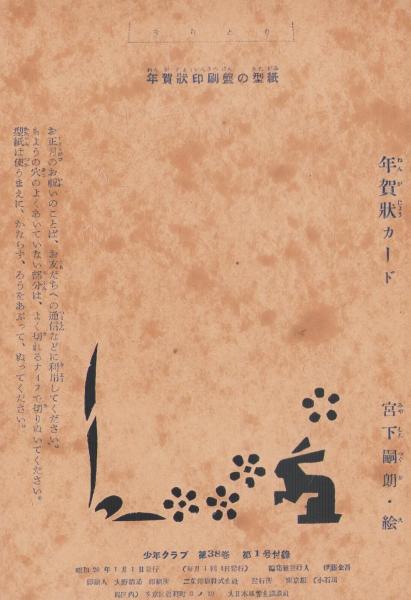 きりとり
年賀狀印刷盤の型紙
年賀狀カード
宮下嗣朗・絵
お正月のお祝いのことば、お友だちへの通信などに利用してください。
もようの穴のよくあいていない部分は、よく切れるナイフで切りぬいてください。
型紙は使うまえに、かならず、ろうをあぶって、ぬってください。
少年クラブ 第38巻 第1号付錄
1月1日発行 (毎月1回1日発行) 編集兼発行人
印刷人 印刷所 発行所 東京都
大日本雄弁会講談社